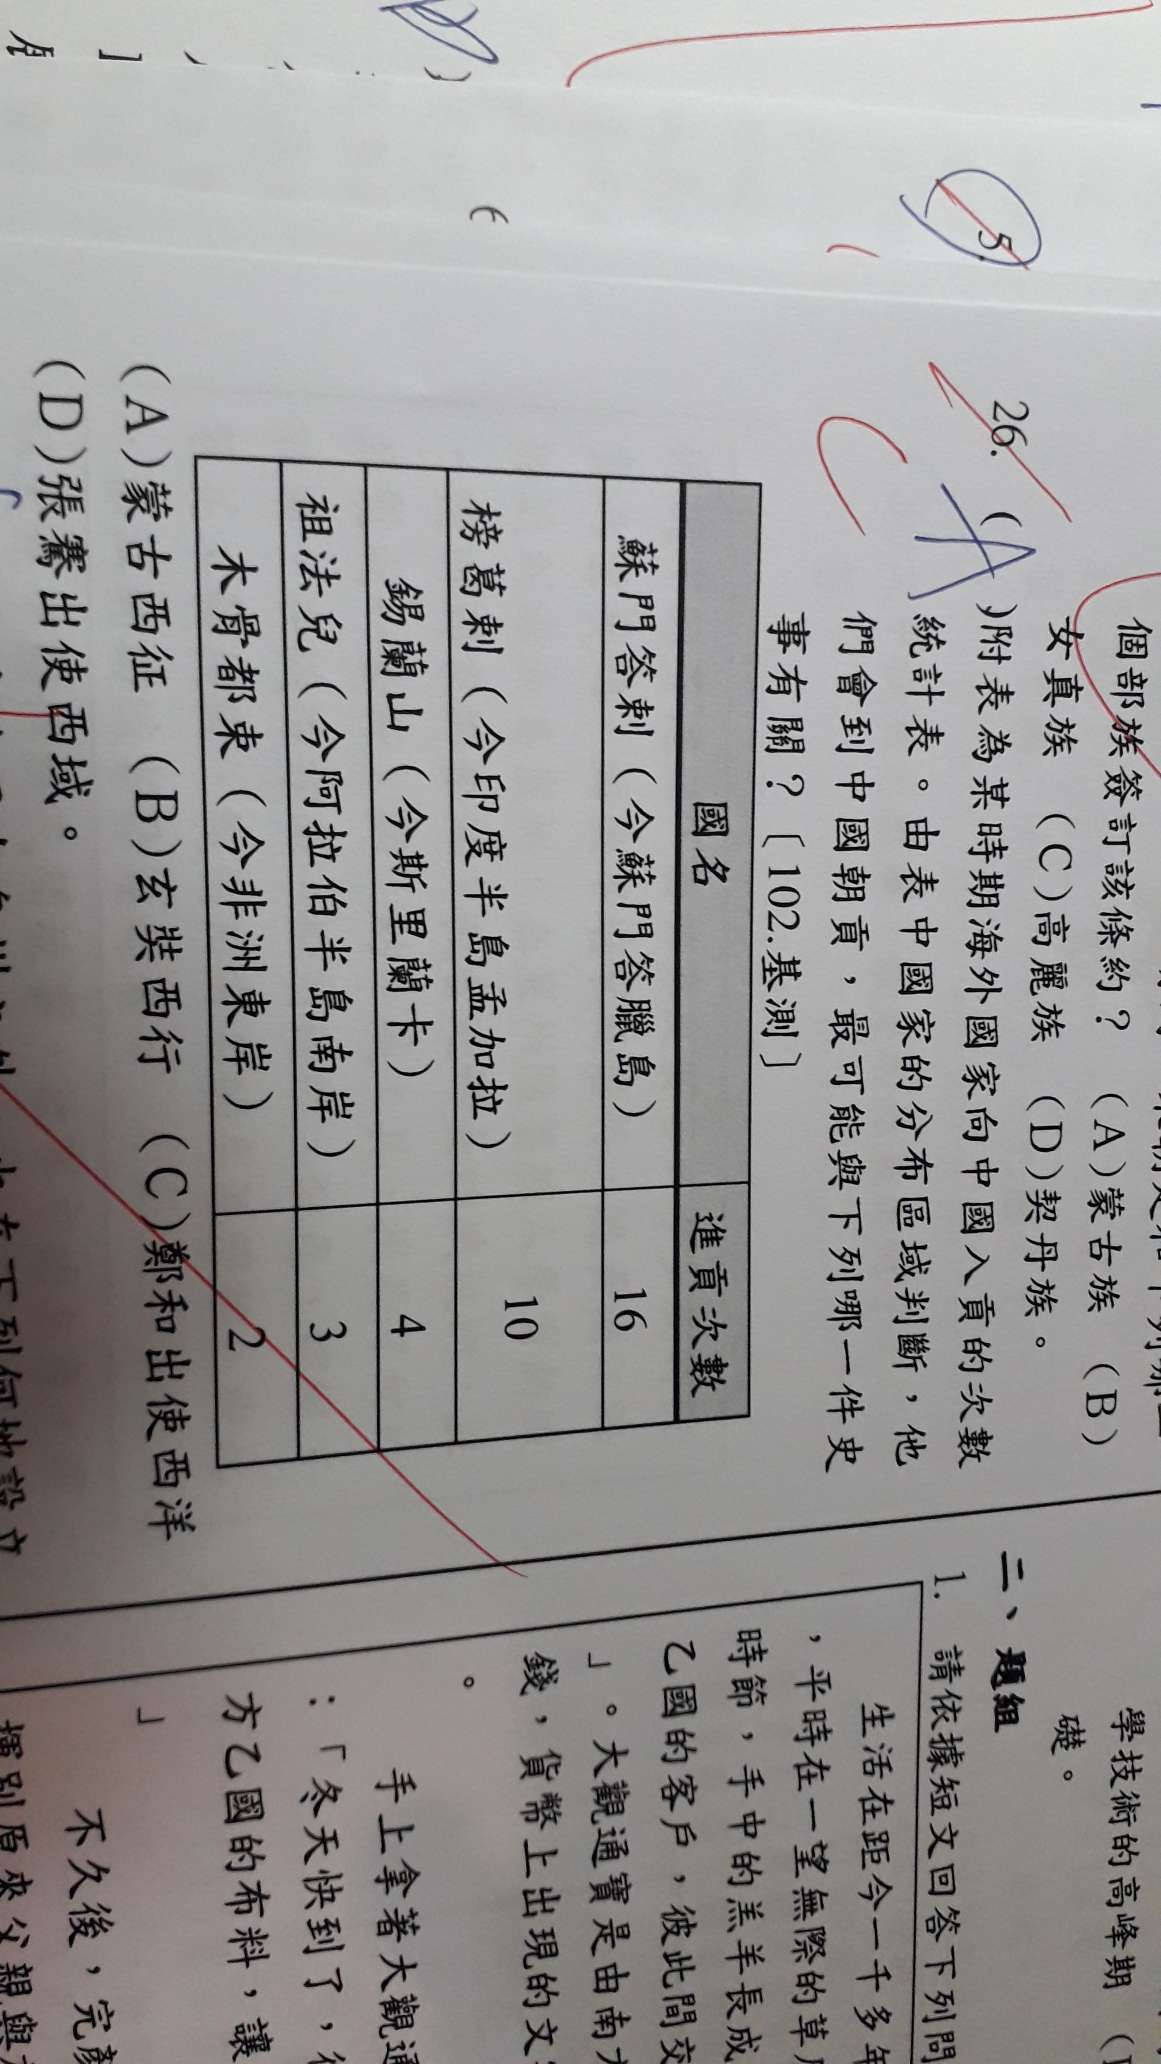 個部族簽訂該條約？ (A)蒙古族 (B)
女真族 (C)高麗族 (D)契丹族。
5.
26. (A)附表為某時期海外國家向中國入貢的次數
統計表。由表中國家的分布區域判斷，他
們會到中國朝貢，最可能與下列哪一件史
事有關？〔102.基測〕
C
國名 進貢次數
蘇門答剌（今蘇門答臘島） 16
榜葛剌（今印度半島孟加拉） 10
錫蘭山（今斯里蘭卡） 4
祖法兒（今阿拉伯半島南岸） 3
木骨都束（今非洲東岸） 2
(A)蒙古西征 (B)玄奘西行 (C)鄭和出使西洋
(D)張騫出使西域。
學技術的高峰期
礎。
二、題組
1. 請依據短文回答下列問
生活在距今一千多年
，平時在一望無際的草
時節，手中的羔羊長成
乙國的客戶，彼此間交
」。大觀通寶是由南
錢，貨幣上出現的文
。
手上拿著大觀通
：「冬天快到了，
方乙國的布料，讓
」
不久後，完顏